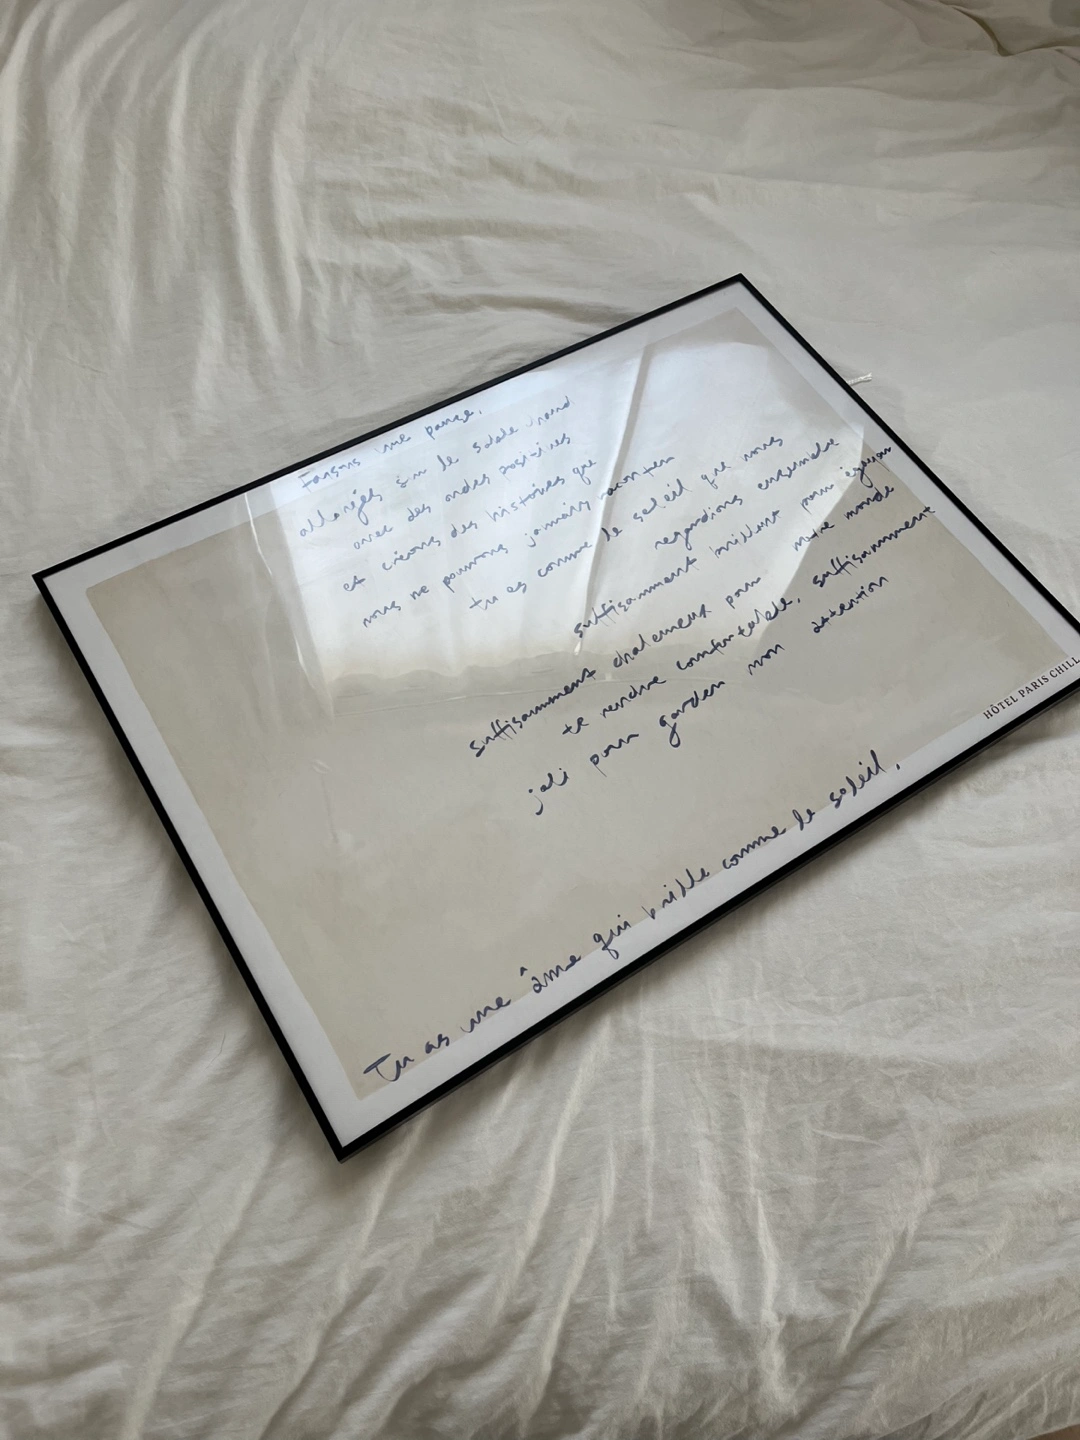 Faisons une pause,
allongés sur le sable chaud
avec des ondes positives
et créons des histoires que
nous ne pourrons jamais raconter
tu es comme le soleil que nous
regardions ensemble
suffisamment brillant pour égayer
notre monde
suffisamment chaleureux pour
te rendre confortable, suffisamment
joli pour garder mon attention
Tu as une âme qui brille comme le soleil.
HÔTEL PARIS CHILL